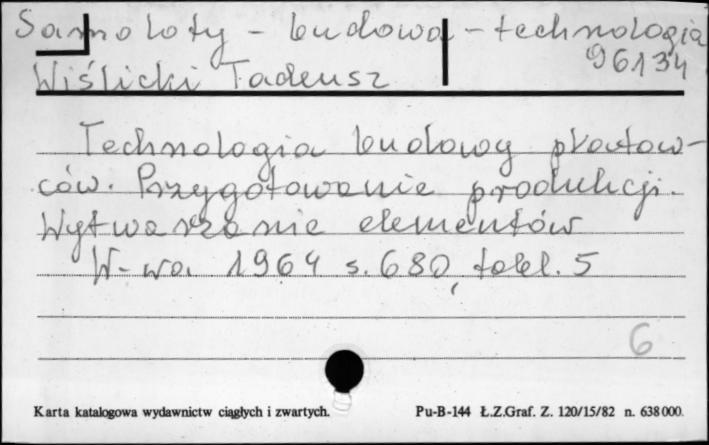 Samoloty - budowa - technologia
96134
Wiślicki Tadeusz
Technologia budowy płatow-
ców. Przygotowanie produkcji.
Wytwarzanie elementów
W-wa. 1964 s. 680, tabl. 5
6
Karta katalogowa wydawnictw ciągłych i zwartych.
Pu-B-144 Ł.Z.Graf. Z. 120/15/82 n. 638000.